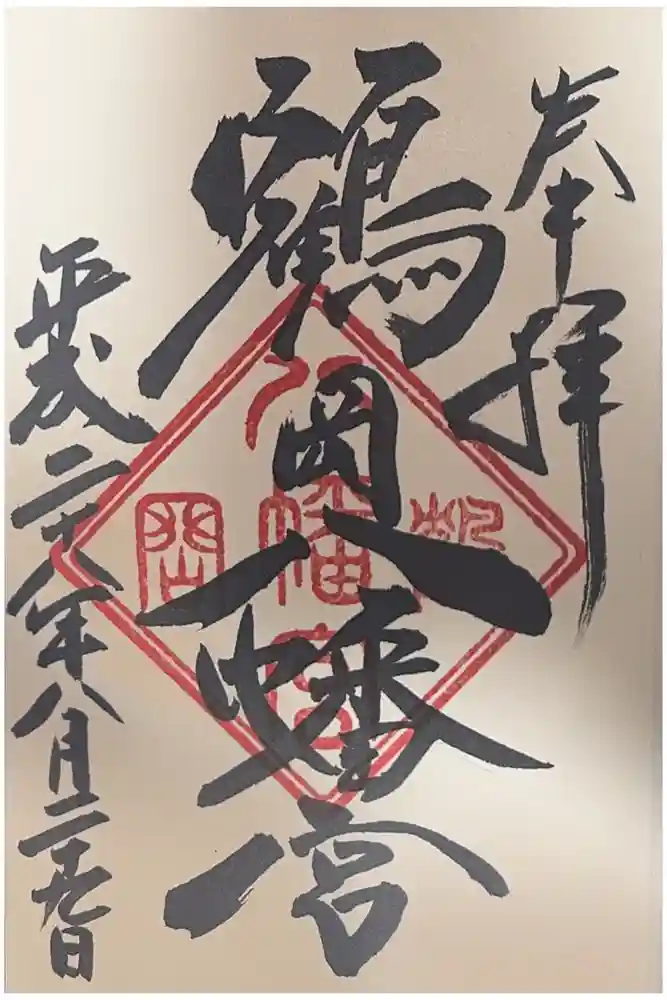 奉拝
鶴岡八幡宮
平成二十八年八月二十九日
八幡宮
岡